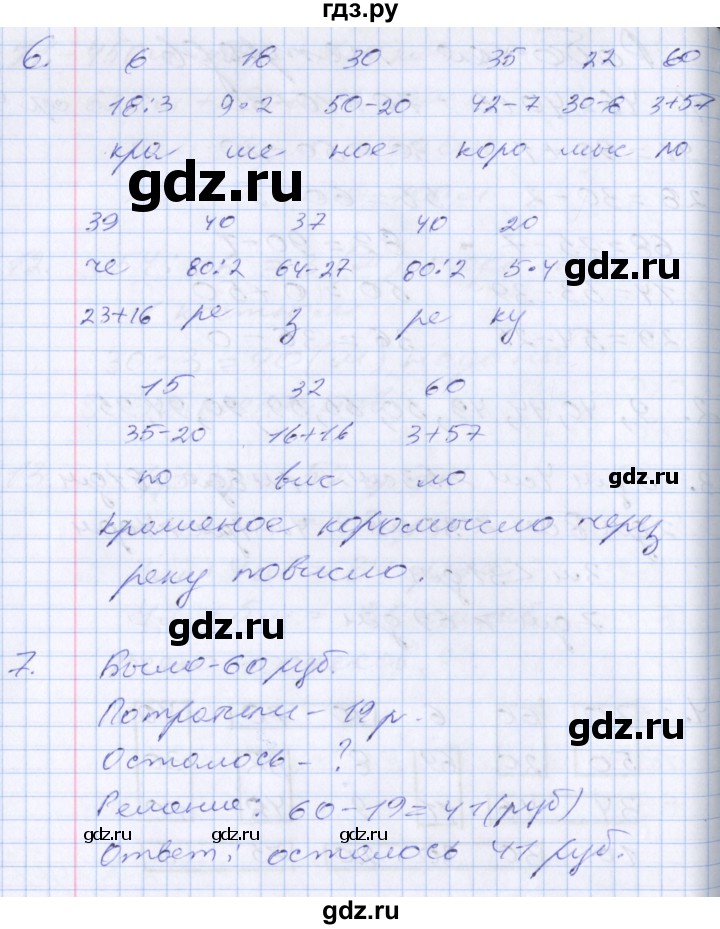 гдз.ру
6. 6 16 30 35 22 60
18:3 9·2 50-20 42-7 30-8 3+57
кра ше ное коро мыс ло
gdz.ru
39 40 37 40 20
че 80:2 64-27 80:2 5·4
gdz.ru
23+16 ре з ре ку
15 32 60
35-20 16+16 3+57
gdz.ru
по вис ло
крашеное коромысло через
реку повисло.
gdz.ru
7. Было-60 руб.
Потратили - 19 р.
gdz.ru
Осталось - ?
Решение: 60-19=41(руб)
gdz.ru gdz.ru gdz.ru gdz.ru
Ответ: осталось 41 руб.
gdz.ru